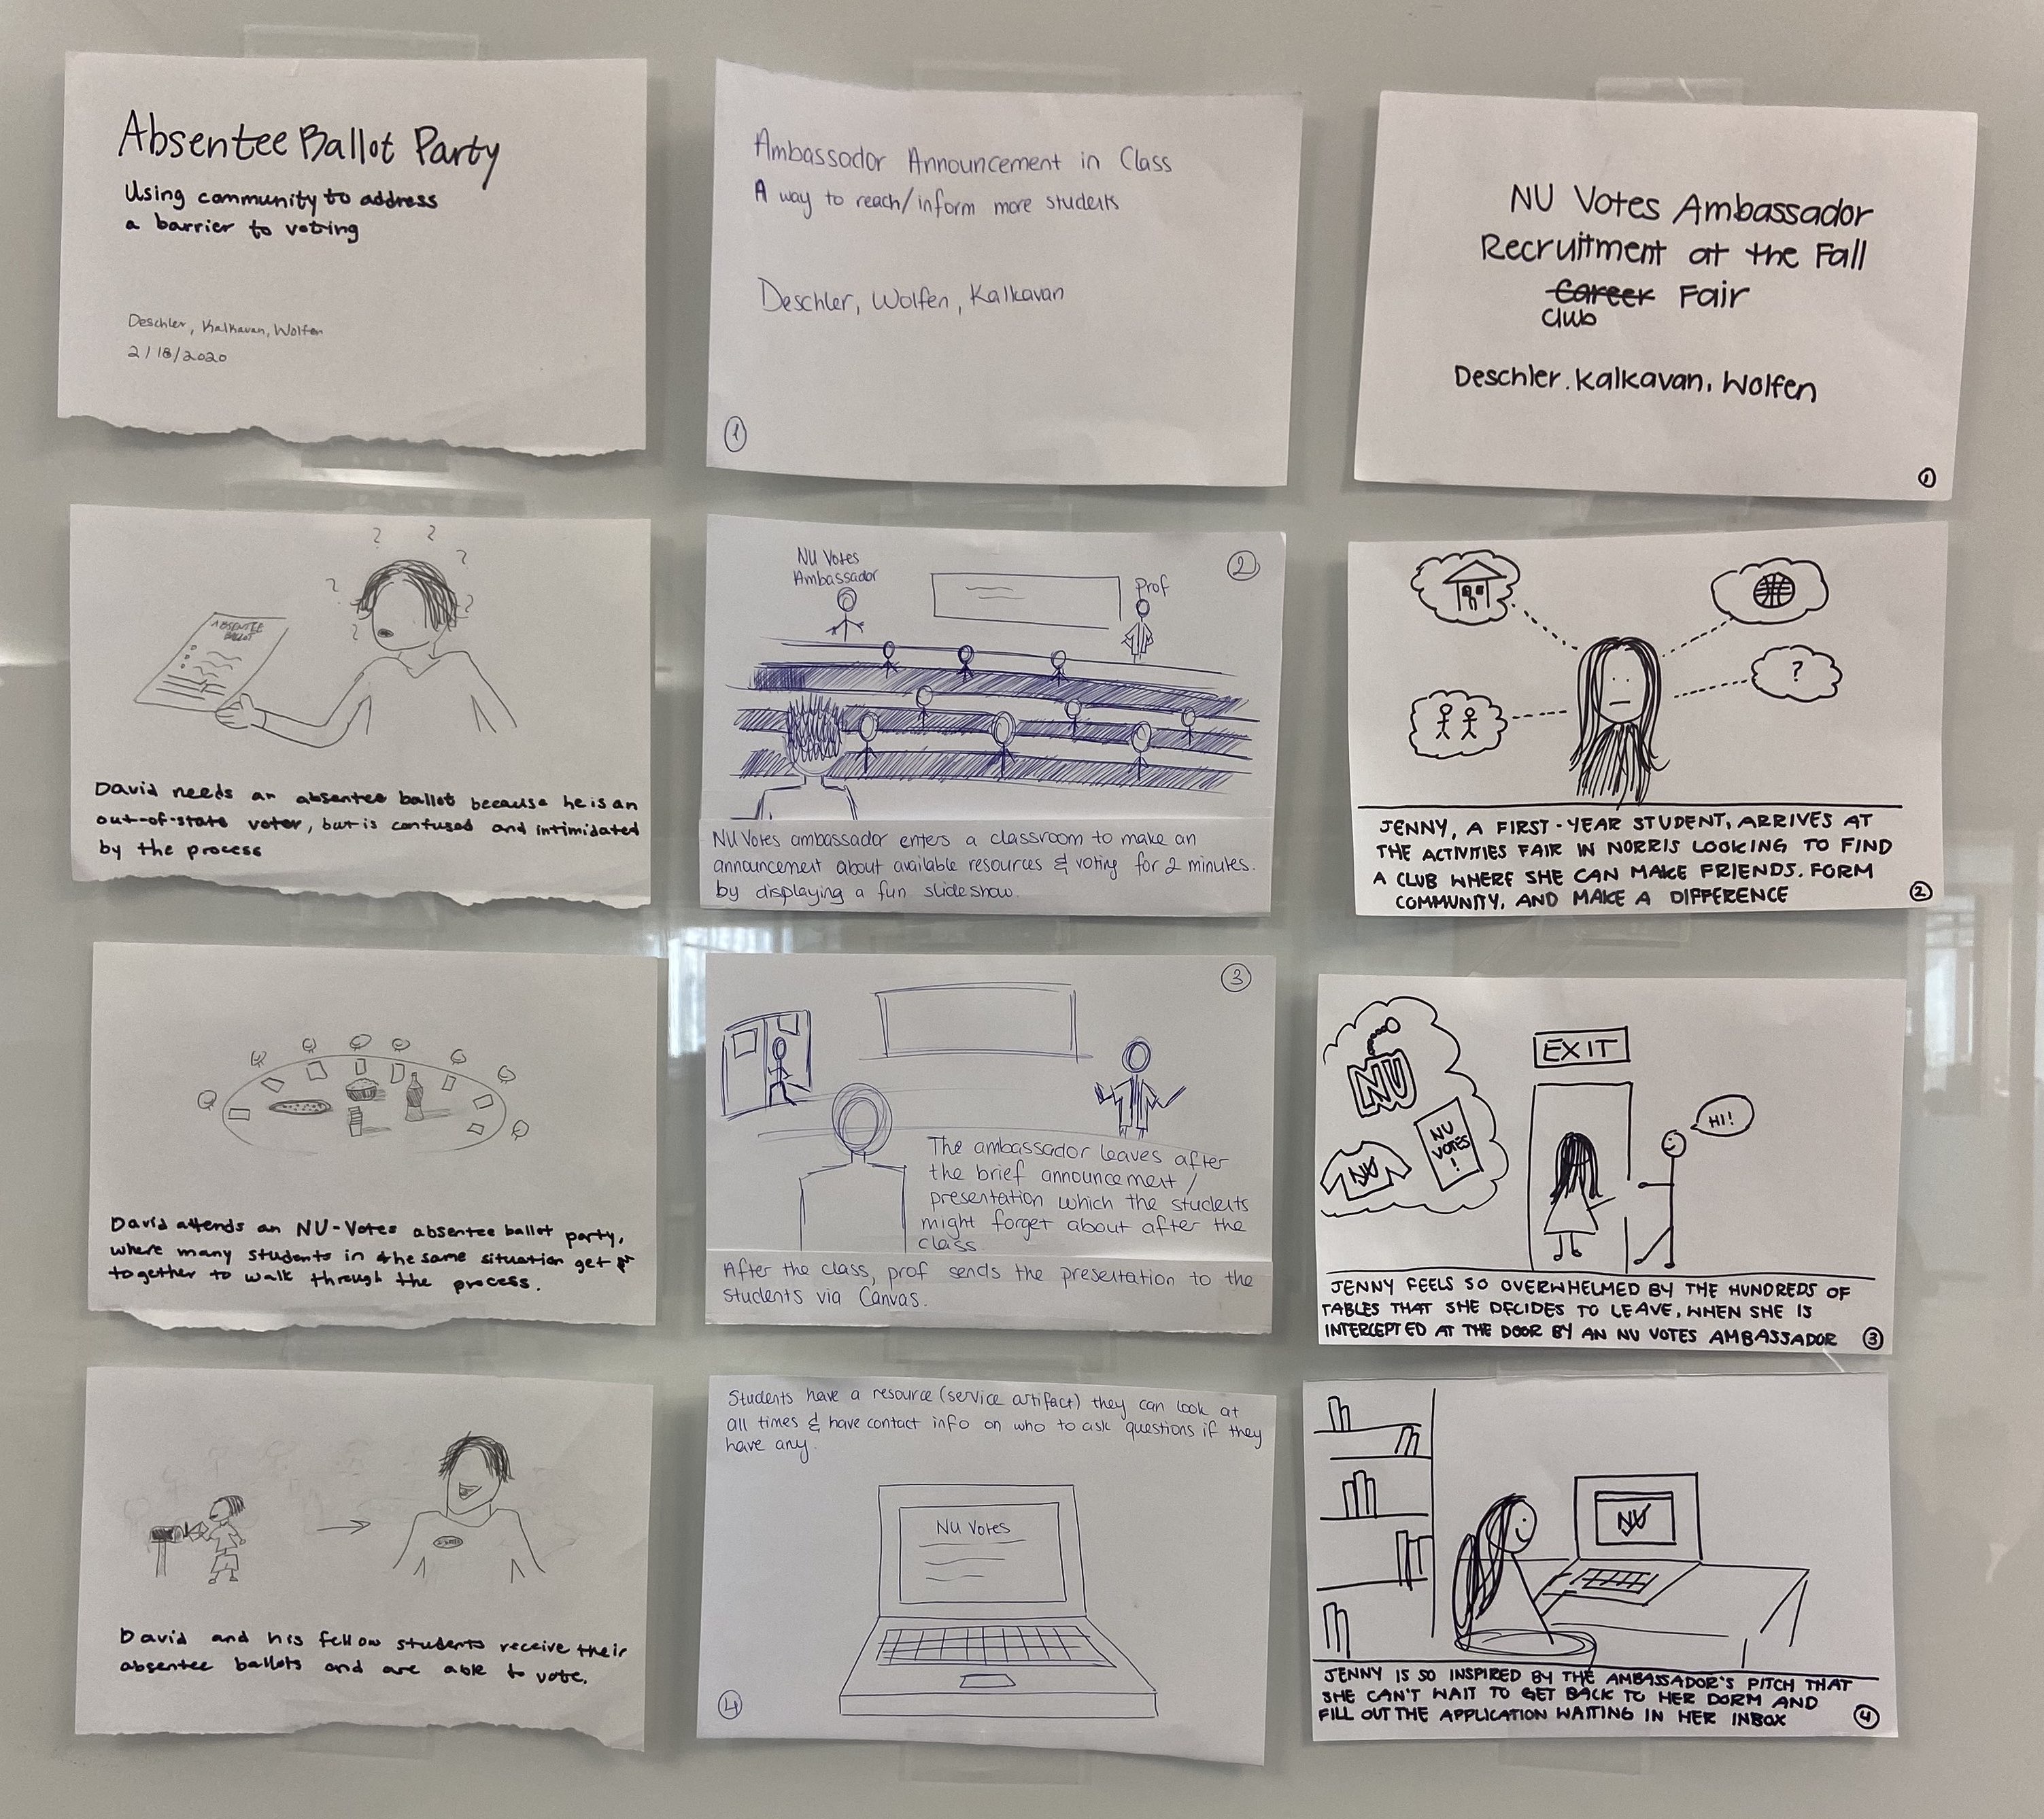 Absentee Ballot Party
Using community to address
a barrier to voting
Deschler, Kalkavan, Wolfen
2/18/2020
? ? ? ? ? ?
ABSENTEE
BALLOT
David needs an absentee ballot because he is an
out-of-state voter, but is confused and intimidated
by the process
David attends an NU-Votes absentee ballot party,
where many students in the same situation get
together to walk through the process.
David and his fellow students receive their
absentee ballots and are able to vote.
Ambassador Announcement in Class
A way to reach/inform more students
Deschler, Wolfen, Kalkavan
1
NU Votes
Ambassador
Prof
2
NU Votes ambassador enters a classroom to make an
announcement about available resources & voting for 2 minutes.
by displaying a fun slideshow.
3
The ambassador leaves after
the brief announcement/
presentation which the students
might forget about after the
class.
After the class, prof sends the presentation to the
students via Canvas.
Students have a resource (service artifact) they can look at
all times & have contact info on who to ask questions if they
have any.
NU Votes
4
NU Votes Ambassador
Recruitment at the Fall
Career Fair
Club
Deschler, Kalkavan, Wolfen
1
?
JENNY, A FIRST-YEAR STUDENT, ARRIVES AT
THE ACTIVITIES FAIR IN NORRIS LOOKING TO FIND
A CLUB WHERE SHE CAN MAKE FRIENDS, FORM
COMMUNITY, AND MAKE A DIFFERENCE
2
NU
NU
VOTES
!
NU
EXIT
HI!
JENNY FEELS SO OVERWHELMED BY THE HUNDREDS OF
TABLES THAT SHE DECIDES TO LEAVE, WHEN SHE IS
INTERCEPTED AT THE DOOR BY AN NU VOTES AMBASSADOR
3
NU
JENNY IS SO INSPIRED BY THE AMBASSADOR'S PITCH THAT
SHE CAN'T WAIT TO GET BACK TO HER DORM AND
FILL OUT THE APPLICATION WAITING IN HER INBOX
4